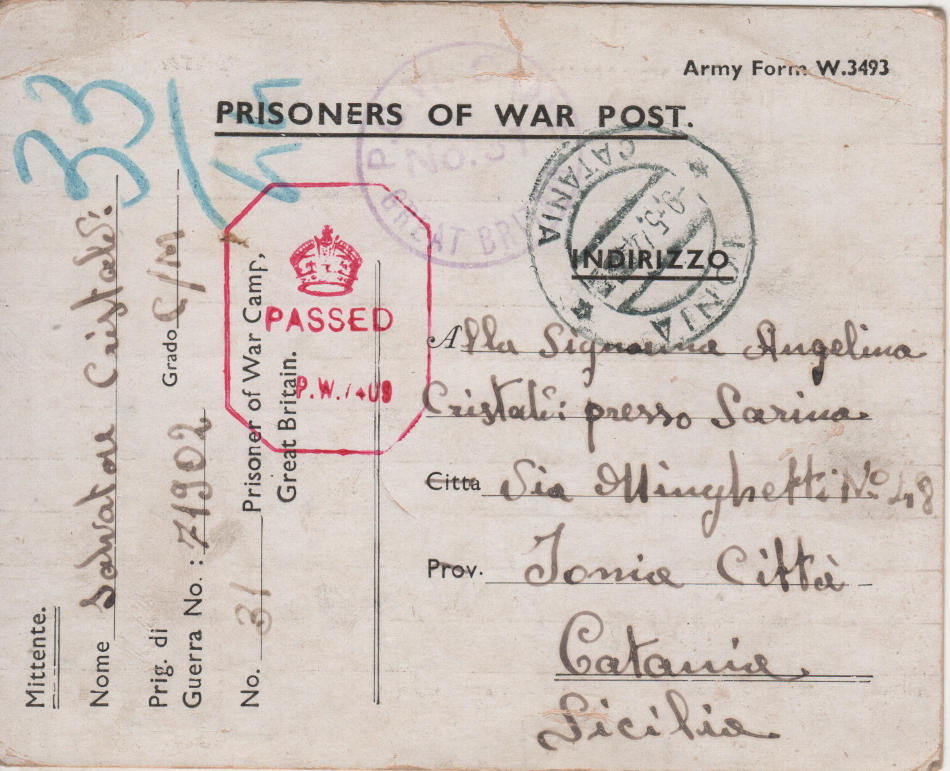 Army Form W.3493
PRISONERS OF WAR POST.
33
P.O.W. CAMP
No. 31
GREAT BRIT
CATANIA
IONIA
PASSED
P.W. 7409
INDIRIZZO
Alla Signorina Angelina
Cristali: presso Sarina
Citta Via Minghetti No 48
Prov. Jonia Città
Catania
Sicilia
Mittente.
Nome Salvatore Cristali:
Prig. di
Guerra No. : 71902 Grado C/M
No. 31 Prisoner of War Camp,
Great Britain.